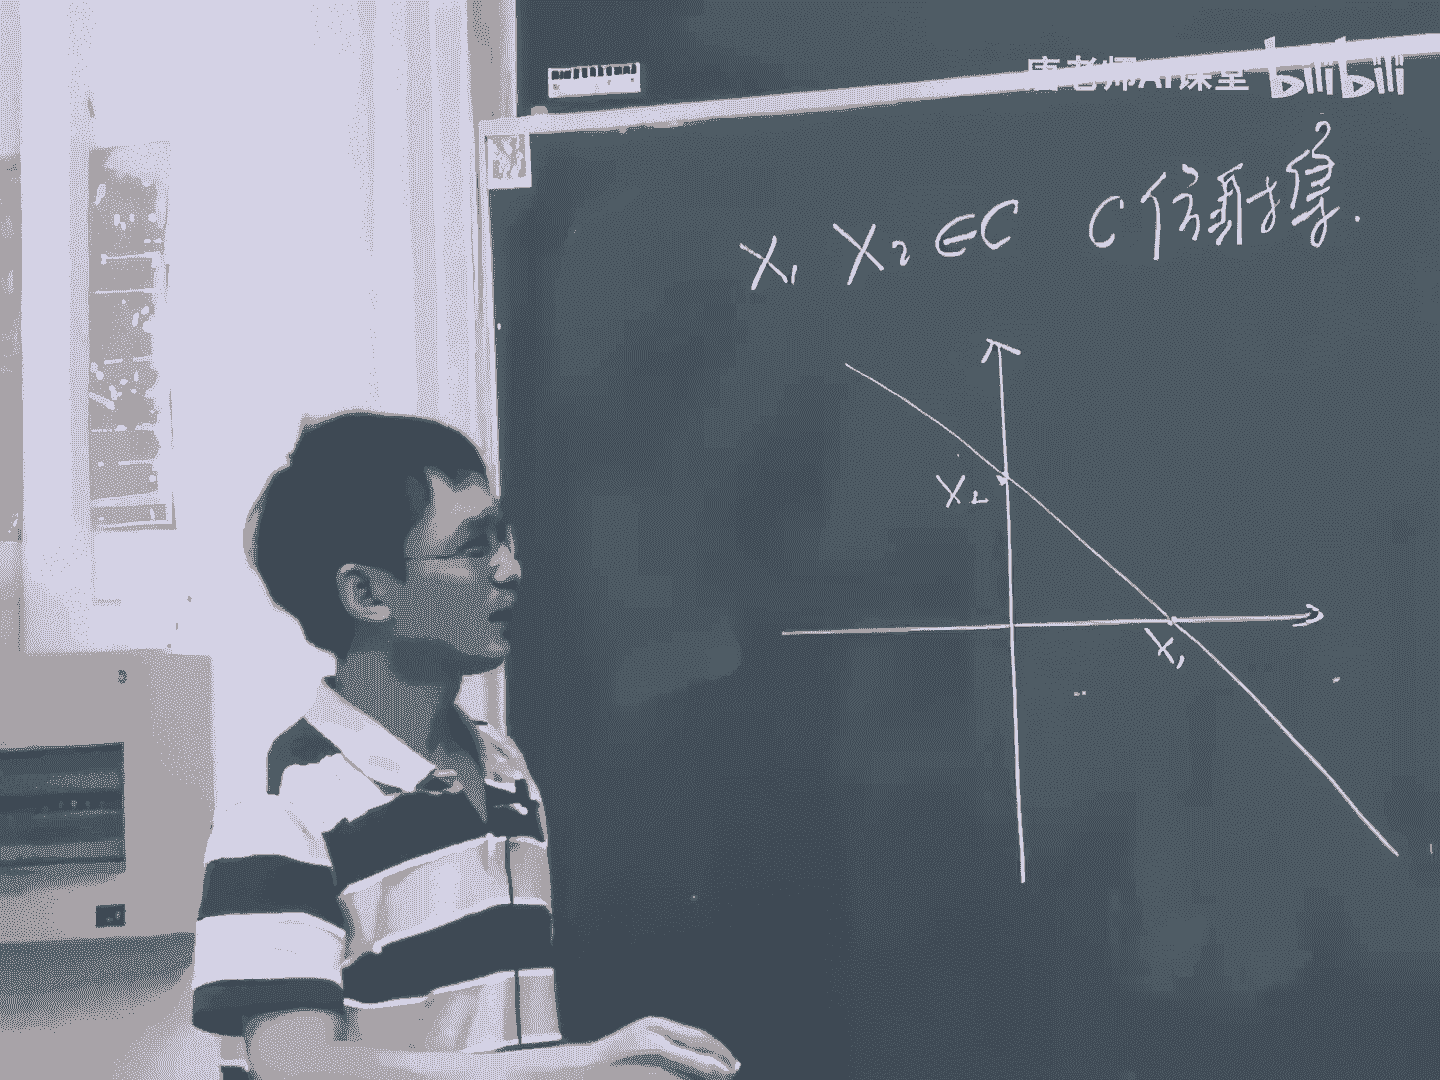 唐老师AI课堂 bilibili
X₁ X₂ ∈C C仿射集.
X₂
X₁